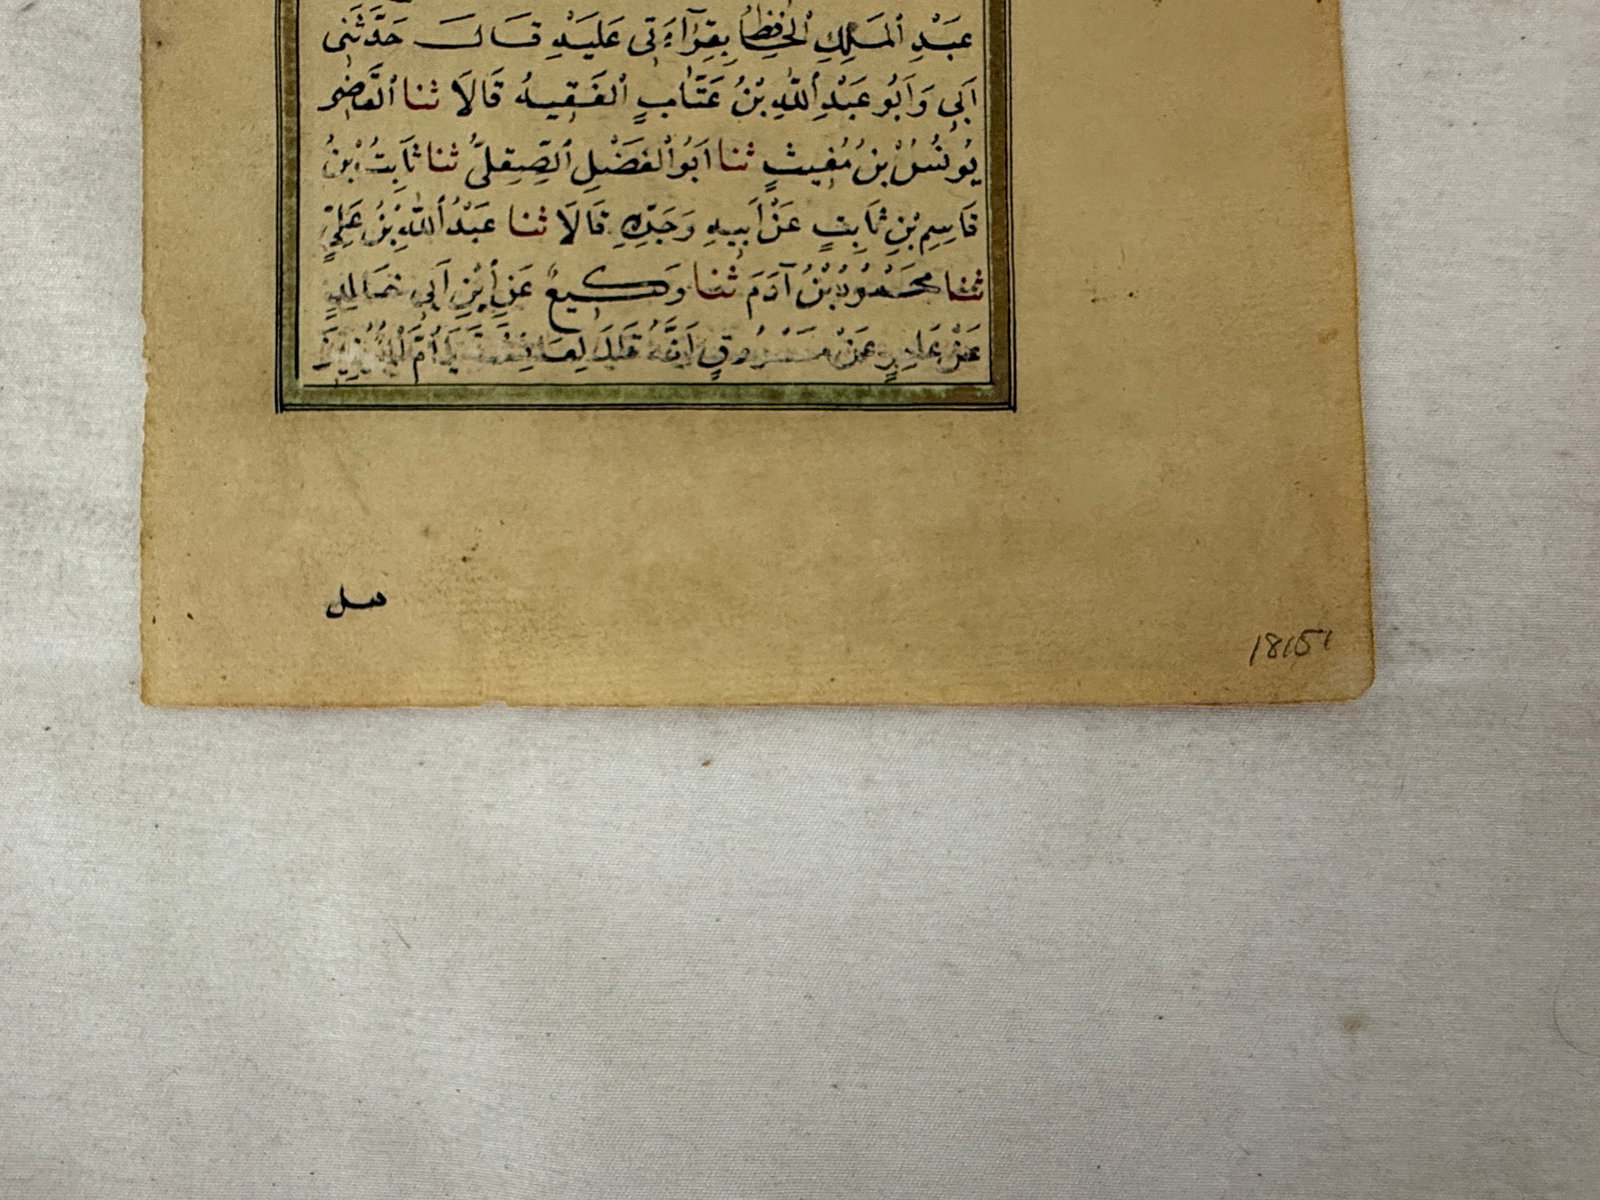 عَبْدِ ٱلْمَلِكِ الْحَافِظُ بِقِرَآءَتِي عَلَيْهِ قَالَ حَدَّثَنِي
اَبِي وَاَبُو عَبْدِ ٱللّٰهِ بْنُ عَتَّابٍ ٱلْفَقِيهُ قَالَا ثنا ٱلْقَاضِي
يُونُسُ بْنُ مُغِيثٍ ثنا اَبُو ٱلْفَضْلِ ٱلصِّقِلِّيُّ ثنا ثَابِتُ بْنُ
قَاسِمِ بْنِ ثَابِتٍ عَنْ اَبِيهِ وَجَدِّهِ قَالَا ثنا عَبْدُ ٱللّٰهِ بْنُ عَلِيٍّ
ثنا مَحْمُودُ بْنُ آدَمَ ثنا وَكِيعٌ عَنِ ٱبْنِ اَبِي خَالِدٍ
عَنْ عَامِرٍ عَنْ مَسْرُوقٍ اَنَّهُ قَالَ لِعَائِشَةَ يَا أُمَّ الْمُؤْمِنِينَ
هل
18151